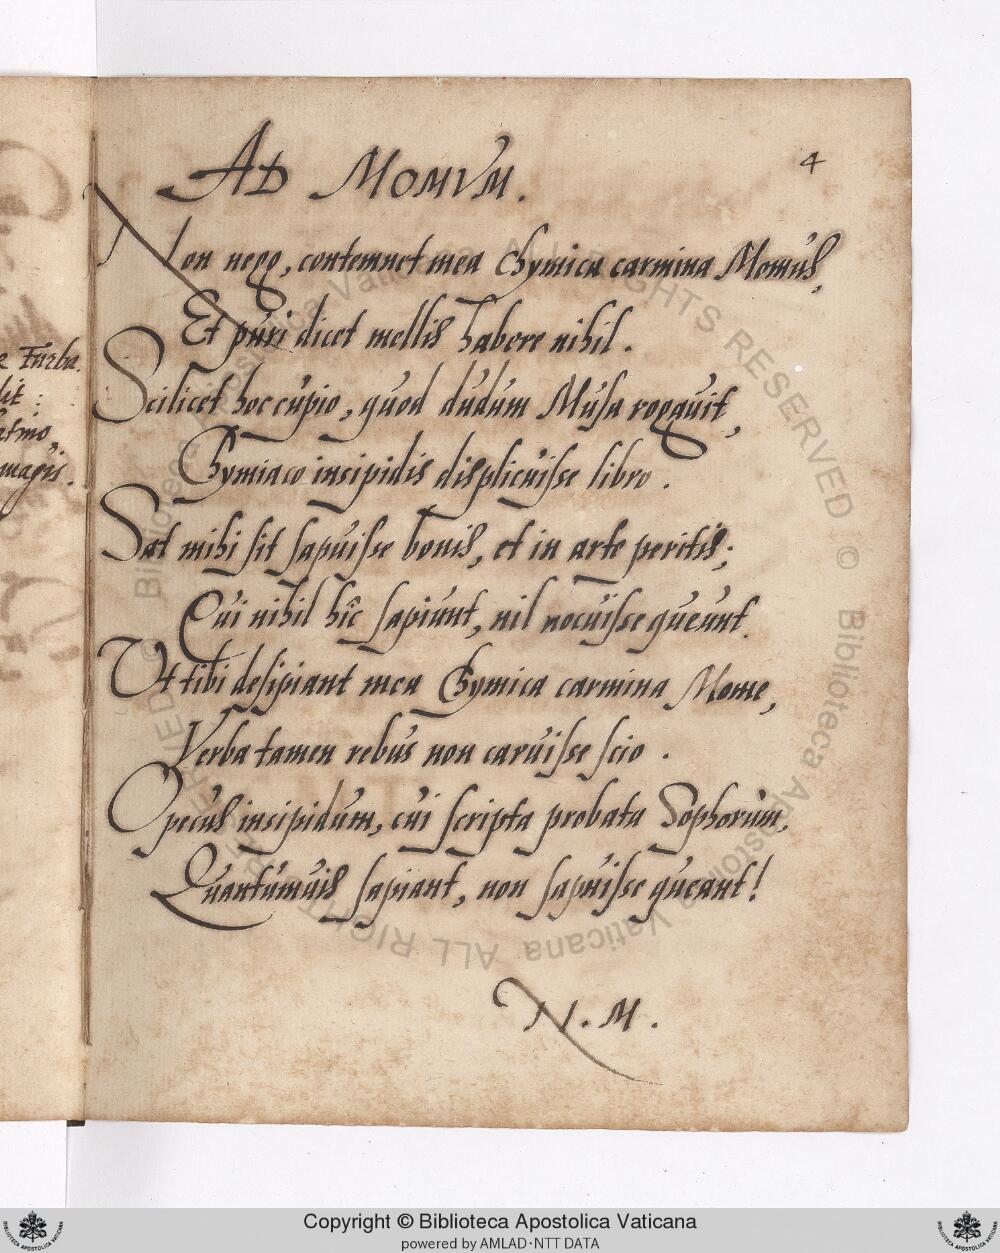 4
AD MOMVM.
Non nego, contemnet mea Chymica carmina Momus,
Et puri dicet mellis habere nihil.
Scilicet hoc cupio, quod dudum Musa rogauit,
Chymiaco insipidis displicuisse libro.
Sat mihi sit sapuisse bonis, et in arte peritis;
Cui nihil hîc sapiunt, nil nocuisse queunt.
Vt tibi desipiant mea Chymica carmina Mome,
Verba tamen rebus non caruisse scio.
O pecus insipidum, cui scripta probata Sophorum,
Quantumuis sapiant, non sapuisse queant!
N. M.
Turba.
dit:
magis.
Copyright © Biblioteca Apostolica Vaticana
powered by AMLAD·NTT DATA
© Biblioteca Apostolica Vaticana ALL RIGHTS RESERVED
© Biblioteca Apostolica Vaticana ALL RIGHTS RESERVED